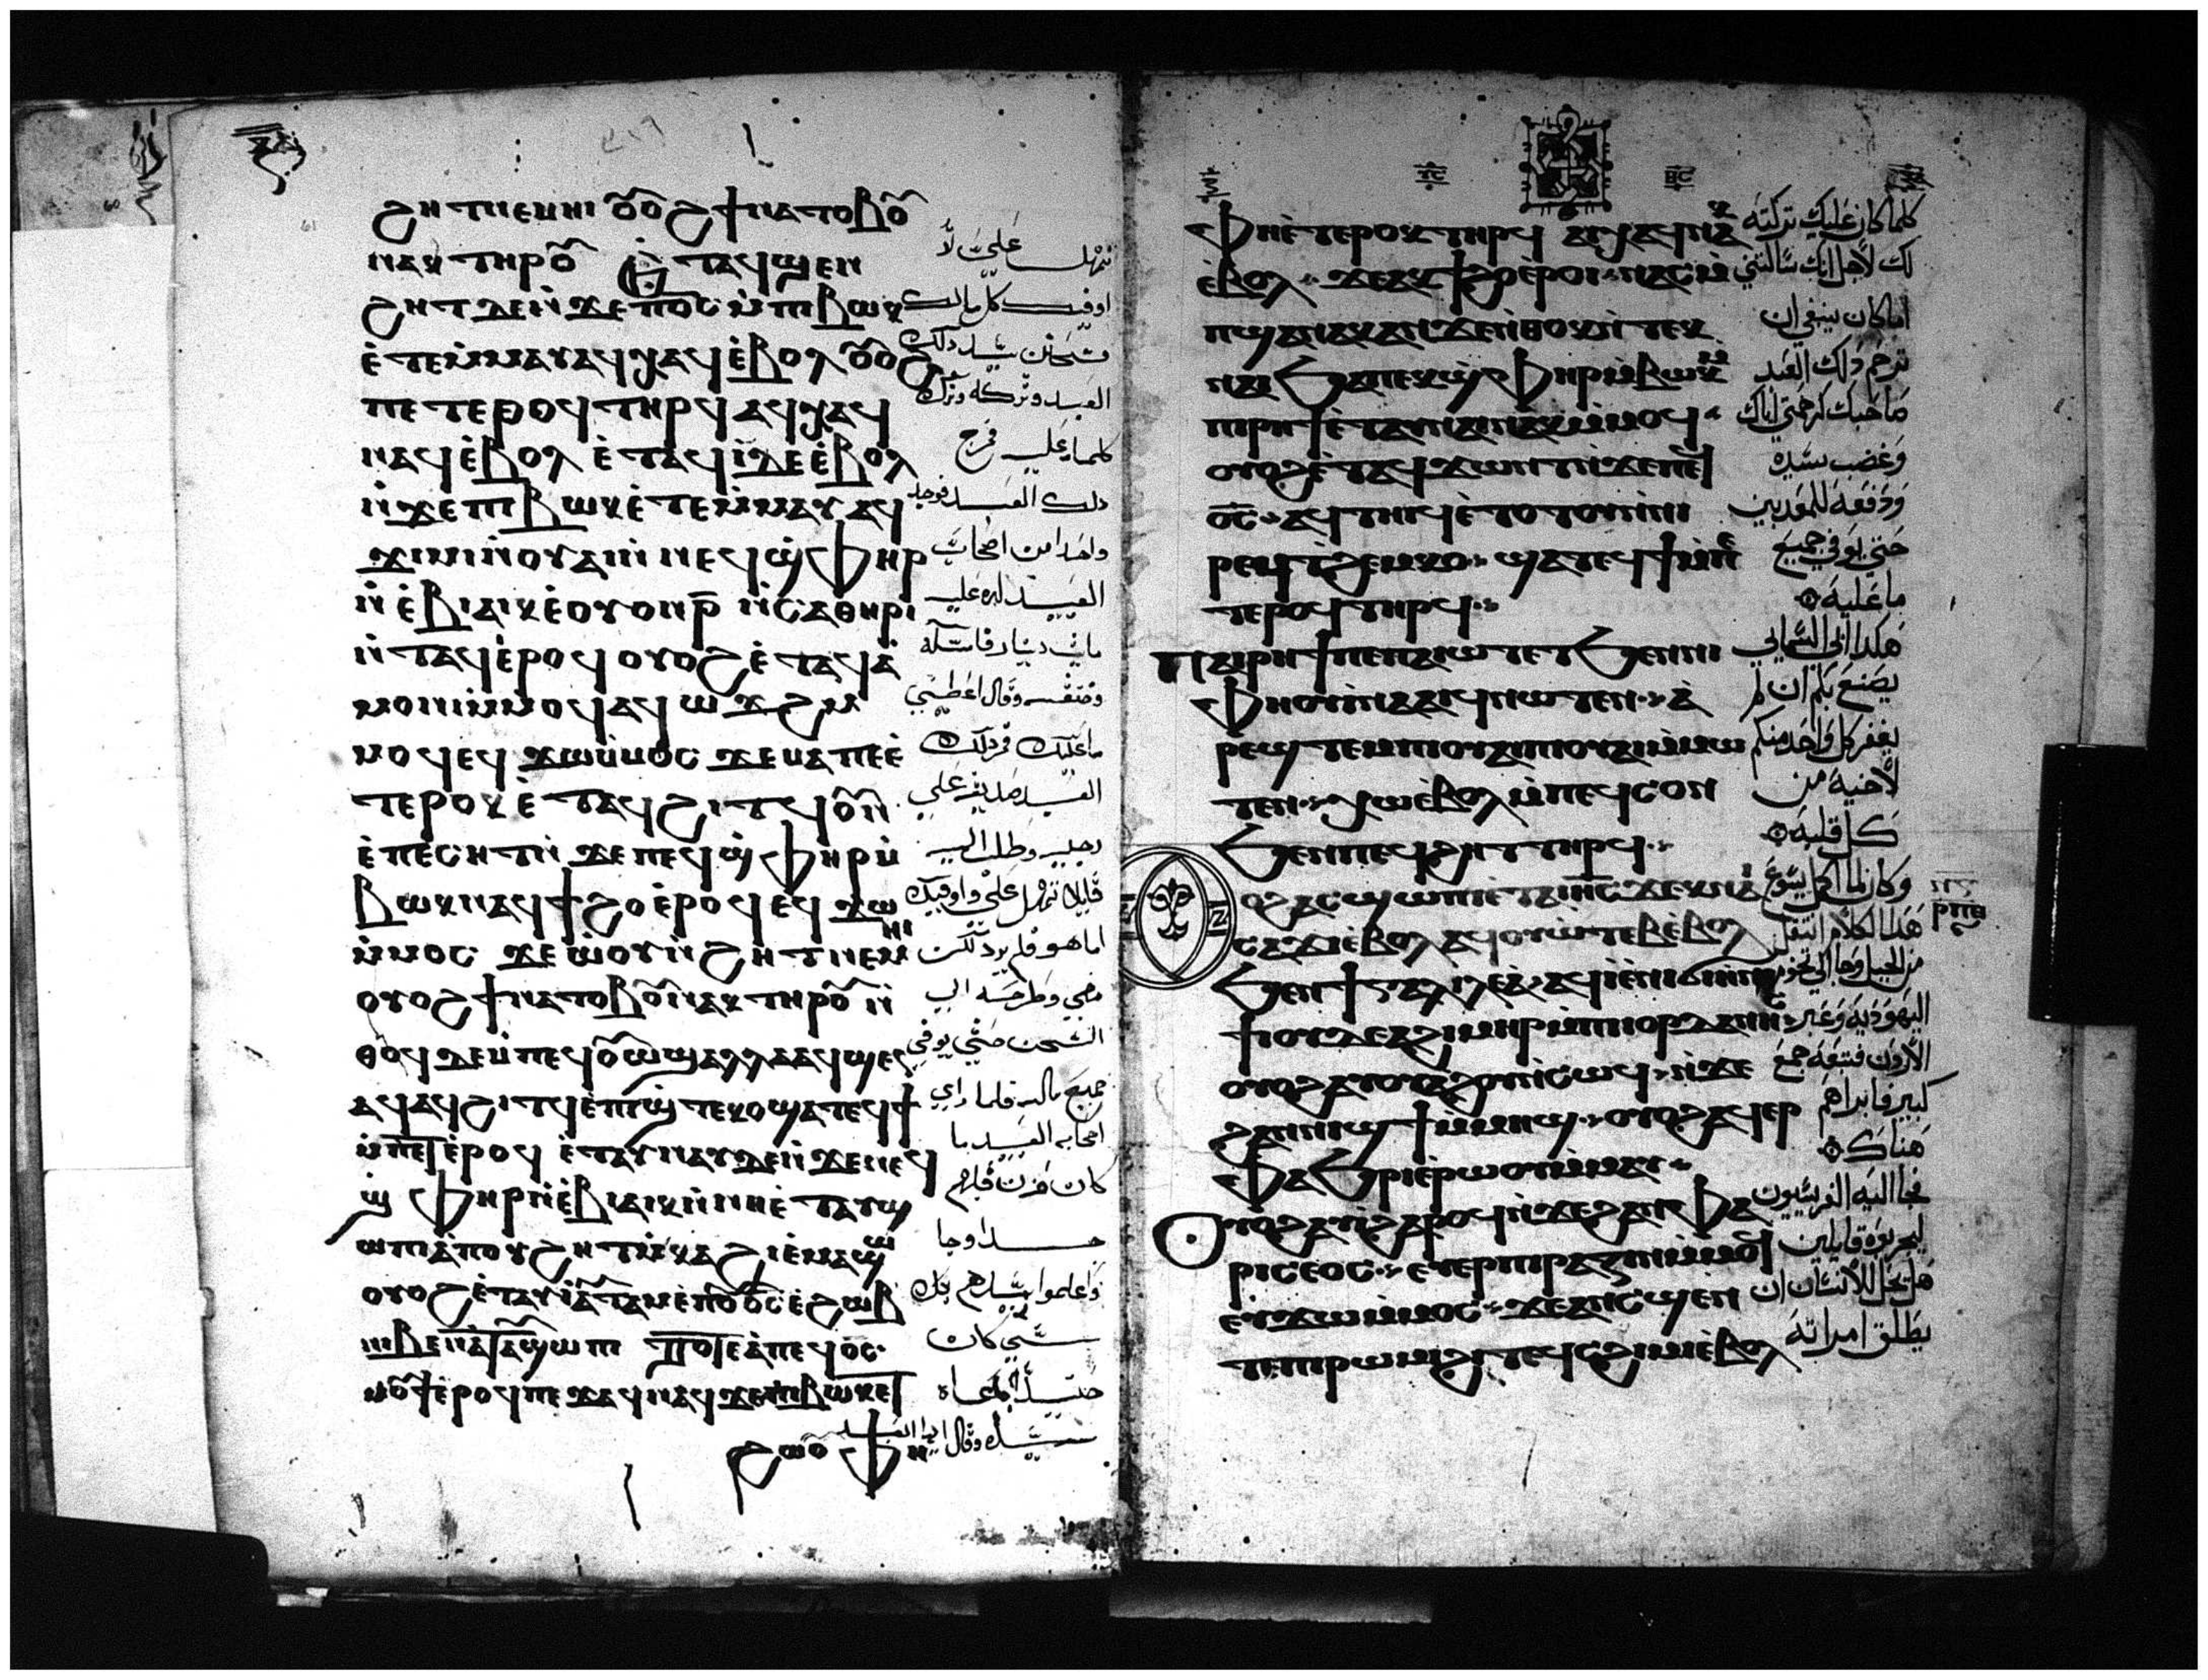 ϩⲏⲧ ⲛⲉⲙⲏⲓ ⲟⲩⲟϩ ϯⲛⲁⲧⲟⲃⲟⲩ
ⲛⲁⲕ ⲧⲏⲣⲟⲩ ⲉⲧⲁϥϣⲉⲛ
ϩⲏⲧ ⲇⲉ ⲛϫⲉ ⲡⲟⲥ ⲙⲡⲓⲃⲱⲕ
ⲉⲧⲉⲙⲙⲁⲩ ⲁϥⲭⲁϥ ⲉⲃⲟⲗ ⲟⲩⲟϩ
ⲡⲉⲧⲉⲣⲟϥ ⲧⲏⲣϥ ⲁϥⲭⲁϥ
ⲛⲁϥ ⲉⲃⲟⲗ ⲉⲧⲁϥⲓ ⲇⲉ ⲉⲃⲟⲗ
ⲛϫⲉ ⲡⲓⲃⲱⲕ ⲉⲧⲉⲙⲙⲁⲩ ⲁϥ
ϫⲓⲙⲓ ⲛⲟⲩⲁⲓ ⲛⲛⲉϥϣⲫⲏⲣ
ⲛⲉⲃⲓⲁⲓⲕ ⲉⲟⲩⲟⲛ ⲣ ⲛⲥⲁⲑⲏⲣⲓ
ⲛⲧⲁϥ ⲉⲣⲟϥ ⲟⲩⲟϩ ⲉⲧⲁϥⲁ
ⲙⲟⲛⲓ ⲙⲙⲟϥ ⲁϥⲱϫϩ ⲙ
ⲙⲟϥ ⲉϥϫⲱ ⲙⲙⲟⲥ ϫⲉ ⲙⲁ ⲡⲉⲧⲉ
ⲧⲉⲣⲟⲕ ⲉⲧⲁϥϩⲓⲧϥ ⲟⲩⲛ
ⲉⲡⲉⲥⲏⲧ ⲛϫⲉ ⲡⲉϥϣⲫⲏⲣ ⲙ
ⲃⲱⲕ ⲛⲁϥϯϩⲟ ⲉⲣⲟϥ ⲉϥϫⲱ
ⲙⲙⲟⲥ ϫⲉ ⲱⲟⲩⲛϩⲏⲧ ⲛⲉⲙⲏⲓ
ⲟⲩⲟϩ ϯⲛⲁⲧⲟⲃⲟⲩ ⲛⲁⲕ ⲧⲏⲣⲟⲩ ⲛ
ⲑⲟϥ ⲇⲉ ⲙⲡⲉϥⲟⲩⲱϣ ⲁⲗⲗⲁ ⲁϥϣⲉ
ⲁϥ ⲁϥϩⲓⲧϥ ⲉⲡⲓϣⲧⲉⲕⲟ ϣⲁⲧⲉϥϯ
ⲙⲡⲉⲧⲉⲣⲟϥ ⲉⲧⲁⲩⲛⲁⲩ ⲇⲉ ⲛϫⲉ ⲛⲉϥ
ϣⲫⲏⲣ ⲛⲉⲃⲓⲁⲓⲕ ⲛⲛⲏ ⲉⲧⲁⲩϣ
ⲱⲡⲓ ⲁⲡⲟⲩϩⲏⲧ ⲙⲕⲁϩ ⲓⲉⲙⲁϣⲱ
ⲟⲩⲟϩ ⲉⲧⲁⲩⲓ ⲁⲩⲧⲁⲙⲉ ⲡⲟⲩⲟⲥ ⲉϩⲱⲃ
ⲛⲓⲃⲉⲛ ⲉⲧⲁⲩϣⲱⲡⲓ ⲧⲟⲧⲉ ⲁⲡⲉϥⲟⲥ
ⲙⲟⲩϯ ⲉⲣⲟϥ ⲡⲉϫⲁϥ ⲛⲁϥ ϫⲉ ⲡⲓⲃⲱⲕ ⲉⲧ
ϩⲱⲟⲩ ⲫⲏ
تمهل علي لا
اوفيك كل مالك
فتحنن سيد ذلك
العبد وتركه وترك
كلما عليه فخرج
ذلك العبد فوجد
واحدا من اصحابه
العبيد له عليه
ماية دينار فامسكه
وخنقه وقال اعطيني
ما عليك فخر ذلك
العبد صديقه علي
رجليه وطلب اليه
قايلا تمهل علي واوفيك
اما هو فلم يرد لكن
مضي وطرحه الي
السجن حتي يوفي
جميع ماله فلما راي
اصحابه العبيد ما
كان حزن قلبهم
جدا وجا
واعلموا سيدهم بكل
شي كان
حينيذ دعاه
سيده وقال ايها العبد
ⲫⲏⲉⲧⲉⲣⲟⲕ ⲧⲏⲣϥ ⲁⲓⲭⲁϥ ⲛⲁⲕ
ⲉⲃⲟⲗ ϫⲉ ⲁⲕϯϩⲟ ⲉⲣⲟⲓ ⲛⲁⲥⲙ
ⲡϣⲁ ⲛⲁⲕ ⲁⲛ ϫⲉ ⲛⲑⲟⲕ ⲛⲧⲉⲕ
ⲛⲁⲓ ϧⲁ ⲡⲉⲕϣⲫⲏⲣ ⲙⲃⲱⲕ
ⲙⲡⲣⲏϯ ⲉⲧⲁⲓⲛⲁⲓ ⲛⲁⲕ ⲙⲙⲟϥ
ⲟⲩⲟϩ ⲉⲧⲁϥϫⲱⲛⲧ ⲛϫⲉ ⲡⲉϥ
ⲟⲥ ⲁϥⲧⲏⲓϥ ⲉⲧⲟⲧⲟⲩ ⲛⲛⲓ
ⲣⲉϥϯϩⲉⲙⲕⲟ ϣⲁⲧⲉϥϯ ⲙⲡⲉ
ⲧⲉⲣⲟϥ ⲧⲏⲣϥ
ⲡⲁⲓⲣⲏϯ ⲡⲉ ⲡⲁⲓⲱⲧ ⲉⲧϧⲉⲛ ⲛⲓ
ⲫⲏⲟⲩⲓ ⲛⲁⲁⲓϥ ⲛⲱⲧⲉⲛ ⲁ
ⲣⲉϣⲧⲉⲙ ⲡⲓⲟⲩⲁⲓ ⲡⲓⲟⲩⲁⲓ ⲙⲙⲱ
ⲧⲉⲛ ⲭⲱ ⲉⲃⲟⲗ ⲙⲡⲉϥⲥⲟⲛ
ϧⲉⲛ ⲡⲉϥϩⲏⲧ ⲧⲏⲣϥ
ⲟϩ ⲁⲥϣⲱⲡⲓ ⲉⲧⲁ ⲓⲏⲥ ϫⲉⲕ ⲛⲁⲓ
ⲥⲁϫⲓ ⲉⲃⲟⲗ ⲁϥⲟⲩⲱⲧⲉⲃ ⲉⲃⲟⲗ
ϧⲉⲛ ϯⲅⲁⲗⲓⲗⲉⲁ ⲁϥⲓ ⲉⲛⲓϭⲓⲏ ⲛⲧⲉ
ϯⲓⲟⲩⲇⲉⲁ ϩⲓⲙⲏⲣ ⲙⲡⲓⲓⲟⲣⲇⲁⲛⲏⲥ
ⲟⲩⲟϩ ⲁⲩⲟⲩⲁϩⲟⲩ ⲛⲥⲱϥ ⲛϫⲉ
ϩⲁⲛⲛⲓϣϯ ⲙⲙⲏϣ ⲟⲩⲟϩ ⲁϥⲉⲣ
ⲫⲁϧⲣⲓ ⲉⲣⲱⲟⲩ ⲙⲙⲁⲩ
ⲟⲩⲟϩ ⲁⲩⲓ ϩⲁⲣⲟϥ ⲛϫⲉ ϩⲁⲛⲫⲁ
ⲣⲓⲥⲉⲟⲥ ⲉⲩⲉⲣⲡⲓⲣⲁⲍⲓⲛ ⲙⲙⲟϥ
ⲉⲩϫⲱ ⲙⲙⲟⲥ ϫⲉ ⲁⲛ ⲥϣⲉ ⲛ
ⲧⲉ ⲡⲓⲣⲱⲙⲓ ϩⲓ ⲧⲉϥⲥϩⲓⲙⲓ ⲉⲃⲟⲗ
كلما كان عليك تركته
لك لاجل انك سالتني
اما كان ينبغي ان
ترحم ذلك العبد
صاحبك كرحمتي اياك
وغضب سيده
ودفعه للمعذبين
حتي يوفي جميع
ما عليه
هكذا ابي السمايي
يصنع بكم ان لم
يغفر كل واحد منكم
لاخيه من
كل قلبه
وكان لما اكمل يسوع
هذا الكلام انتقل
من الجليل وجا الي تخوم
اليهودية وعبر
الاردن فتبعه جمع
كبير فابراهم
هناك
فجا اليه الفريسيون
ليجربوه قايلين
هل يحل للانسان ان
يطلق امراته
ⲣⲡⲑ